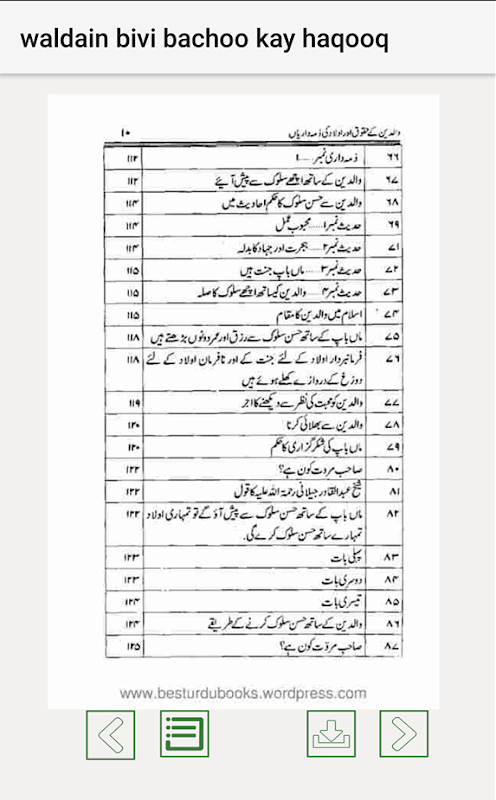 waldain bivi bachoo kay haqooq
والدین کے حقوق اور اولاد کی ذمہ داریاں ۱۰
۶۶ ذمہ داری نمبر.....۱ ۱۱۲
۶۷ والدین کے ساتھ اچھے سلوک سے پیش آیئے ۱۱۲
۶۸ والدین سے حسن سلوک کا حکم احادیث میں ۱۱۴
۶۹ حدیث نمبر۱.....محبوب عمل ۱۱۴
۷۱ حدیث نمبر۲.....ہجرت اور جہاد کا بدلہ ۱۱۴
۷۲ حدیث نمبر۳.....ماں باپ جنت ہیں ۱۱۵
۷۳ حدیث نمبر۴.....والدین کیساتھ اچھے سلوک کا صلہ ۱۱۵
۷۴ اسلام میں والدین کا مقام ۱۱۵
۷۵ ماں باپ کے ساتھ حسن سلوک سے رزق اور عمر دونوں بڑھتے ہیں ۱۱۸
۷۶ فرمانبردار اولاد کے لئے جنت کے اور نافرمان اولاد کے لئے ۱۱۸
دوزخ کے دروازے کھلے ہوئے ہیں
۷۷ والدین کو محبت کی نظر سے دیکھنے کا اجر ۱۱۹
۷۸ والدین سے بھلائی کرنا ۱۲۰
۷۹ ماں باپ کی شکر گزاری کا حکم ۱۲۰
۸۰ صاحب مروت کون ہے؟ ۱۲۲
۸۱ شیخ عبدالقادر جیلانی رحمۃ اللہ علیہ کا قول ۱۲۲
۸۲ ماں باپ کے ساتھ حسن سلوک سے پیش آؤ گے تو تمہاری اولاد ۱۲۲
تمہارے ساتھ حسن سلوک کرے گی۔
۸۳ پہلی بات ۱۲۳
۸۴ دوسری بات ۱۲۳
۸۵ تیسری بات ۱۲۴
۸۶ والدین کے ساتھ حسن سلوک کرنے کے طریقے ۱۲۴
۸۷ صاحب مروّت کون ہے؟ ۱۲۵
www.besturdubooks.wordpress.com